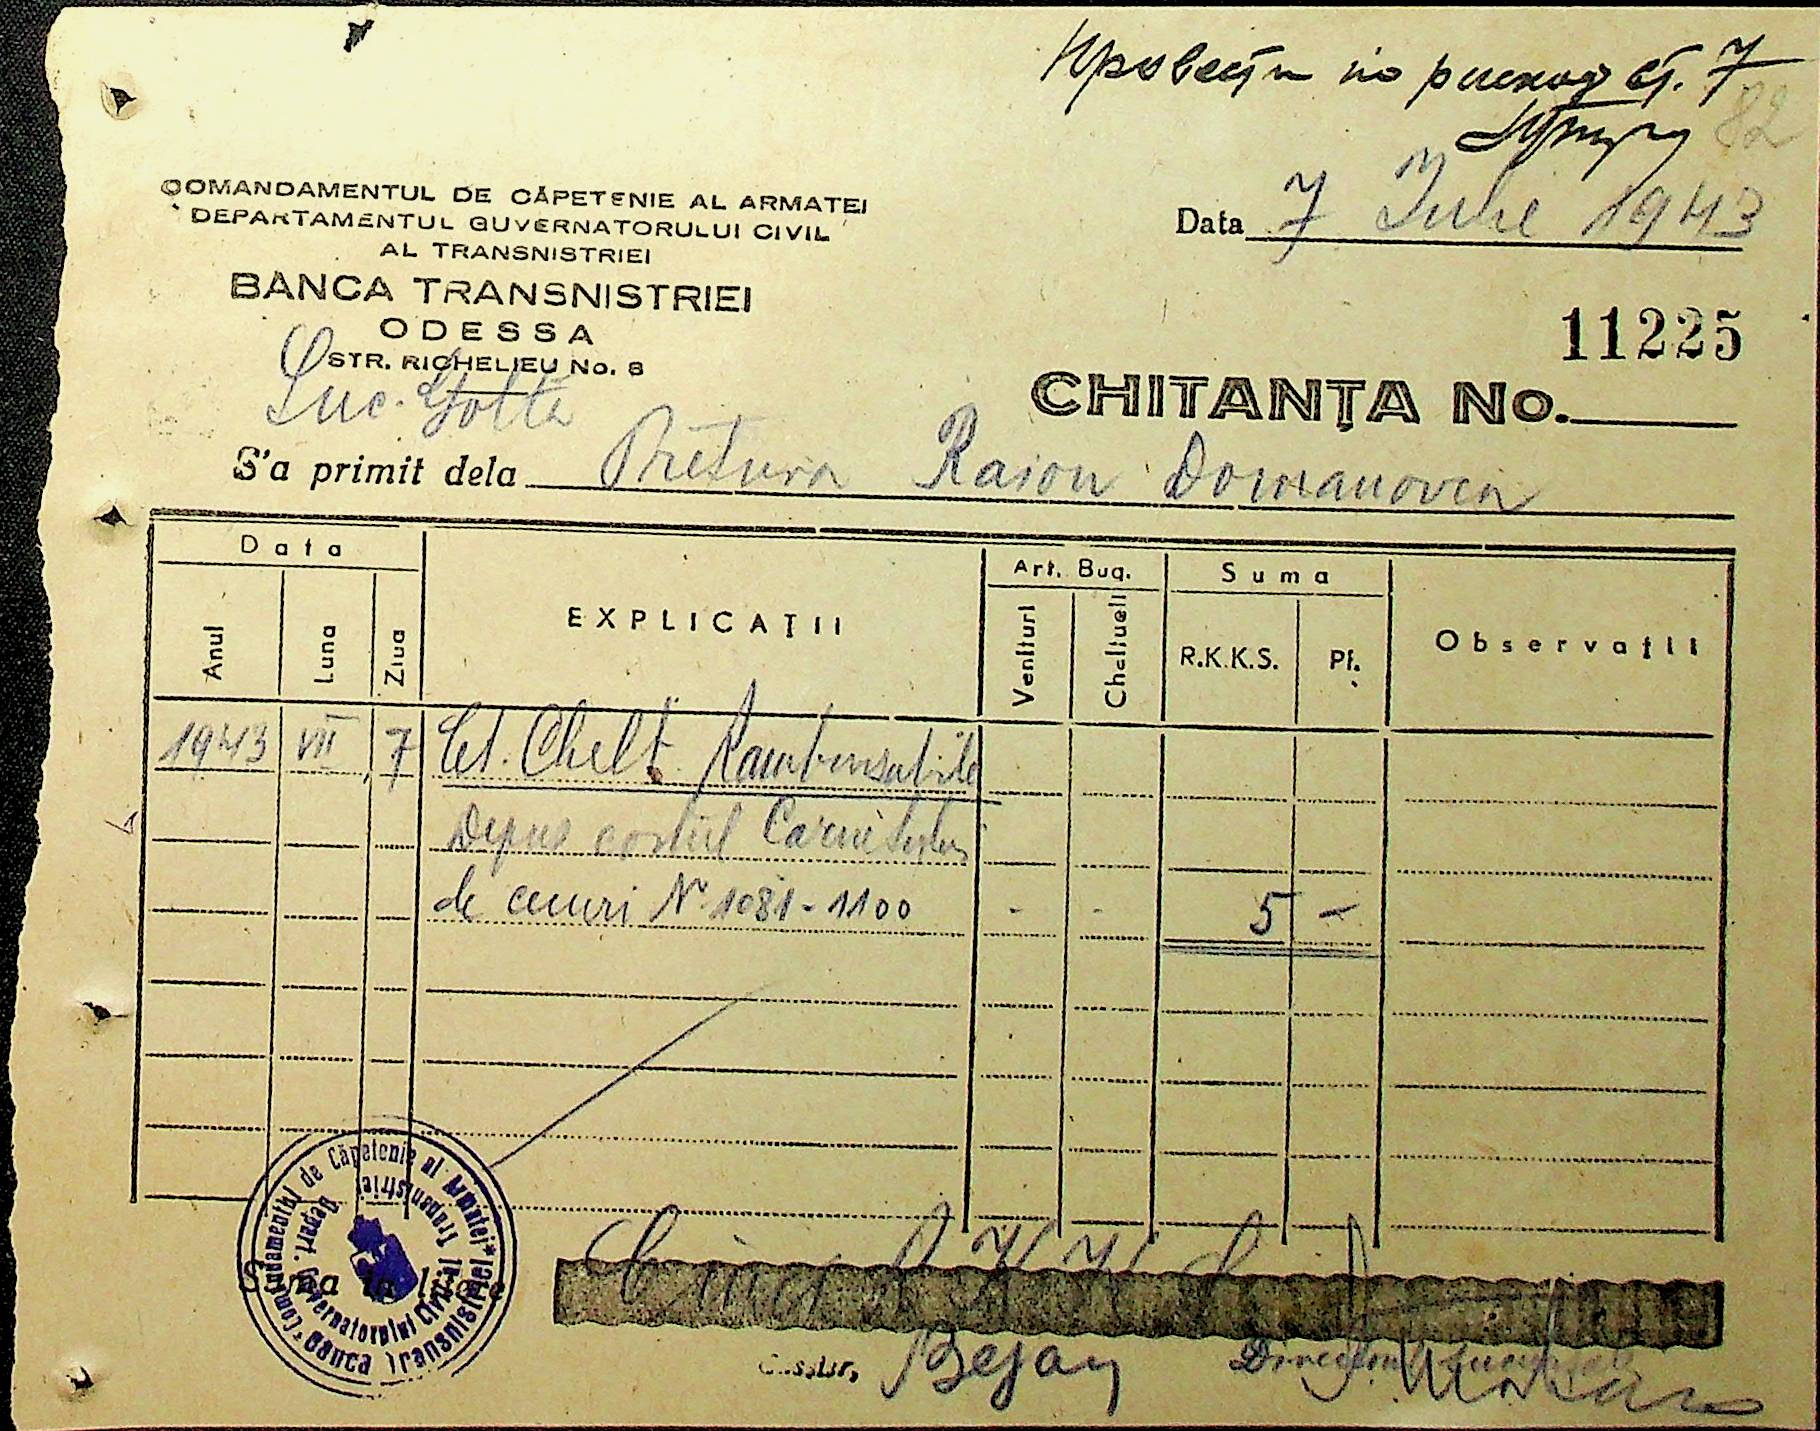 Провести по расход ст. 7
82
COMANDAMENTUL DE CĂPETENIE AL ARMATEI
DEPARTAMENTUL GUVERNATORULUI CIVIL
AL TRANSNISTRIEI
BANCA TRANSNISTRIEI
ODESSA
STR. RICHELIEU No. 8
Suc. Golta
Data 7 Iulie 1943
11225
CHITANȚA No.
S'a primit dela Pretura Raion Domanovca
Data
Anul Luna Ziua
EXPLICAȚII
Art. Bug.
Venituri Cheltueli
Suma
R.K.K.S. Pf.
Observații
1943 VII 7 Ct. Chelt. Rambursabile
Depus costul Carnetului
de cecuri Nº 1081-1100 - - 5 -
Comandamentul de Căpetenie al Armatei * Banca Transnistriei
Depart. Guvernatorului Civil al Transnistriei
Suma în litere Cinci R.K.K.S.
Casier, Bejan